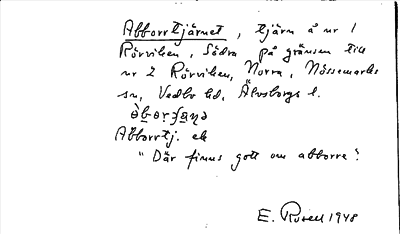 Abborrtjärnet, tjärn å nr 1
Rörviken, Södra på gränsen till
nr 2 Rörviken, Norra, Nössemarks
sn, Vedbo hd, Älvsborgs l.
Abborrtj. ek
"Där finns gott om abborre".
E. Rosell 1948